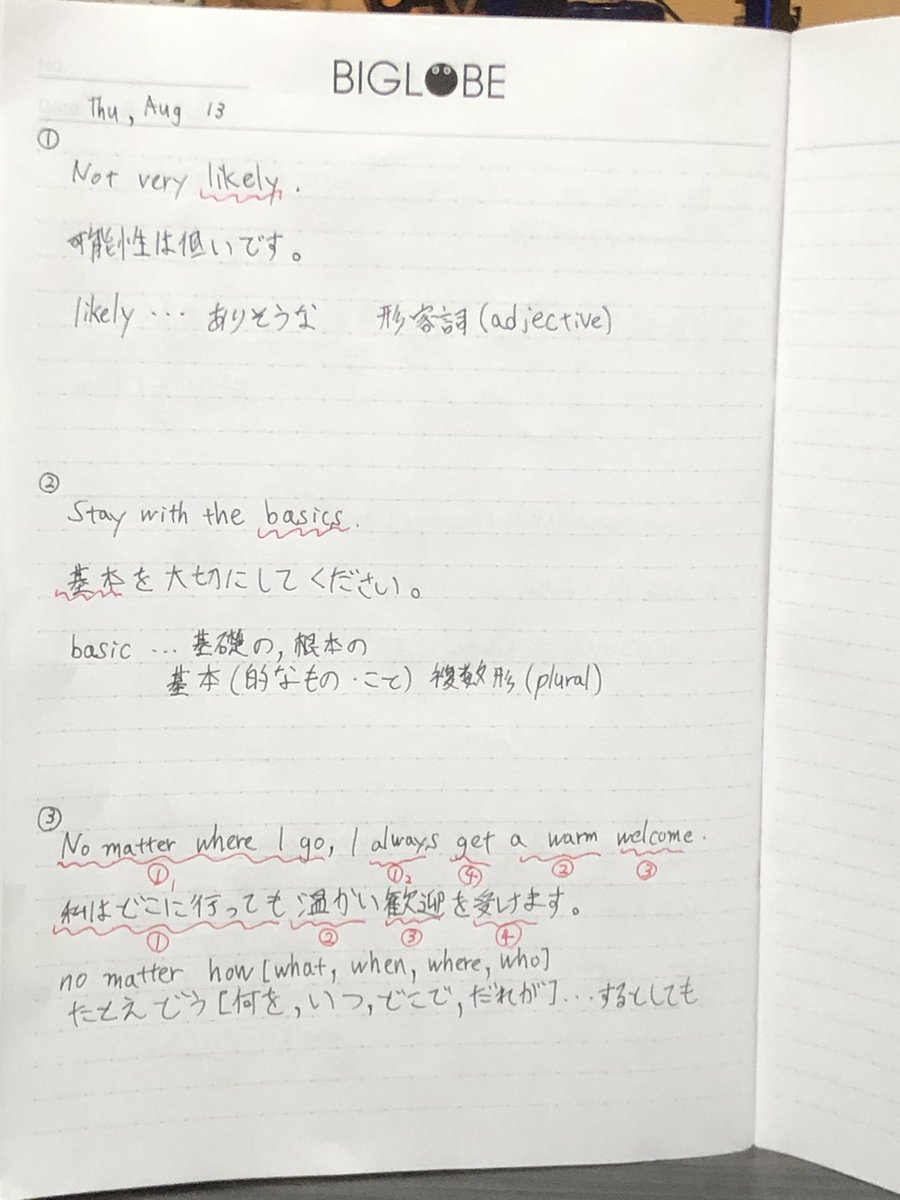 No.
BIGLOBE
Date Thu, Aug 13
①
Not very likely.
可能性は低いです。
likely … ありそうな 形容詞(adjective)
②
Stay with the basics.
基本を大切にしてください。
basic … 基礎の, 根本の
基本(的なもの・こと) 複数形(plural)
③
No matter where I go, I always get a warm welcome.
①₁ ①₂ ④ ② ③
私はどこに行っても温かい歓迎を受けます。
① ② ③ ④
no matter how [what, when, where, who]
たとえどう[何を, いつ, どこで, だれが]…するとしても